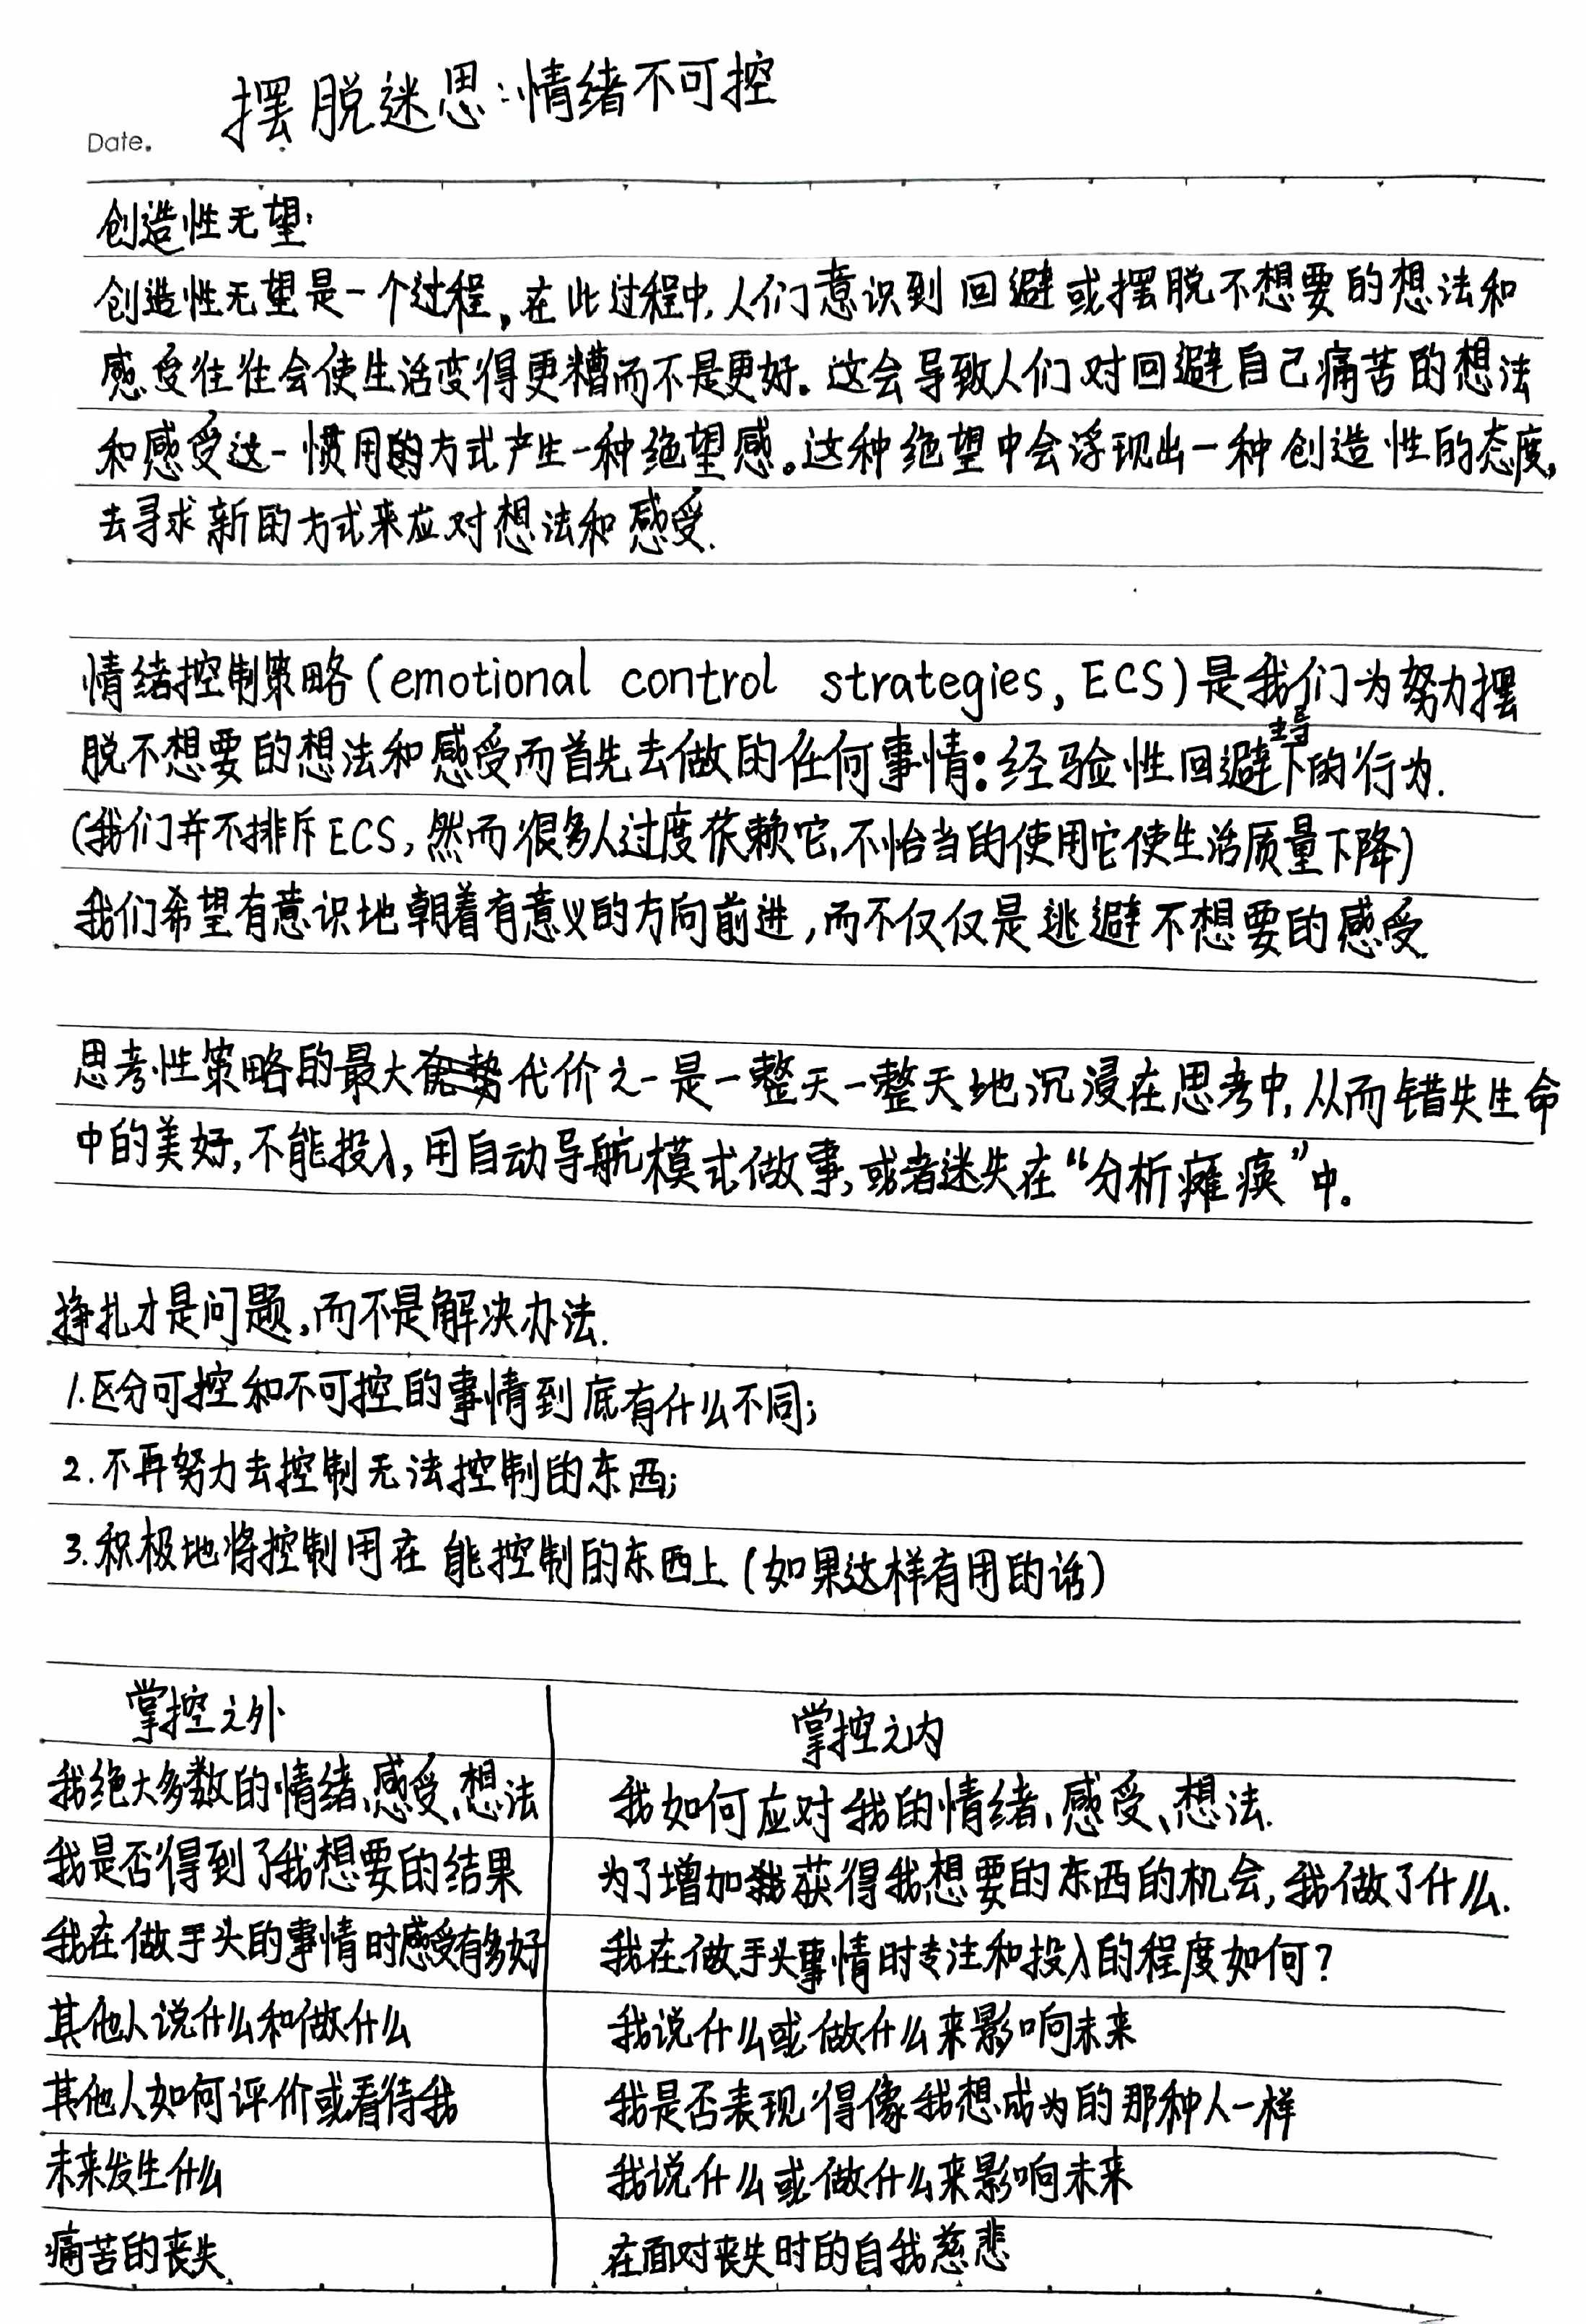 摆脱迷思:情绪不可控
Date.
创造性无望:
创造性无望是一个过程,在此过程中,人们意识到回避或摆脱不想要的想法和
感受往往会使生活变得更糟而不是更好。这会导致人们对回避自己痛苦的想法
和感受这一惯用的方式产生一种绝望感。这种绝望中会浮现出一种创造性的态度,
去寻求新的方式来应对想法和感受.
情绪控制策略(emotional control strategies, ECS)是我们为努力摆
脱不想要的想法和感受而首先去做的任何事情:经验性回避主导下的行为.
(我们并不排斥ECS,然而很多人过度依赖它,不恰当的使用它使生活质量下降)
我们希望有意识地朝着有意义的方向前进,而不仅仅是逃避不想要的感受.
思考性策略的最大代价之一是一整天一整天地沉浸在思考中,从而错失生命
中的美好,不能投入,用自动导航模式做事,或者迷失在“分析瘫痪”中。
挣扎才是问题,而不是解决办法.
1.区分可控和不可控的事情到底有什么不同;
2.不再努力去控制无法控制的东西;
3.积极地将控制用在能控制的东西上(如果这样有用的话)
掌控之外 掌控之内
我绝大多数的情绪、感受、想法 我如何应对我的情绪、感受、想法.
我是否得到了我想要的结果 为了增加我获得我想要的东西的机会,我做了什么.
我在做手头的事情时感受有多好 我在做手头事情时专注和投入的程度如何?
其他人说什么和做什么 我说什么或做什么来影响未来
其他人如何评价或看待我 我是否表现得像我想成为的那种人一样
未来发生什么 我说什么或做什么来影响未来
痛苦的丧失 在面对丧失时的自我慈悲